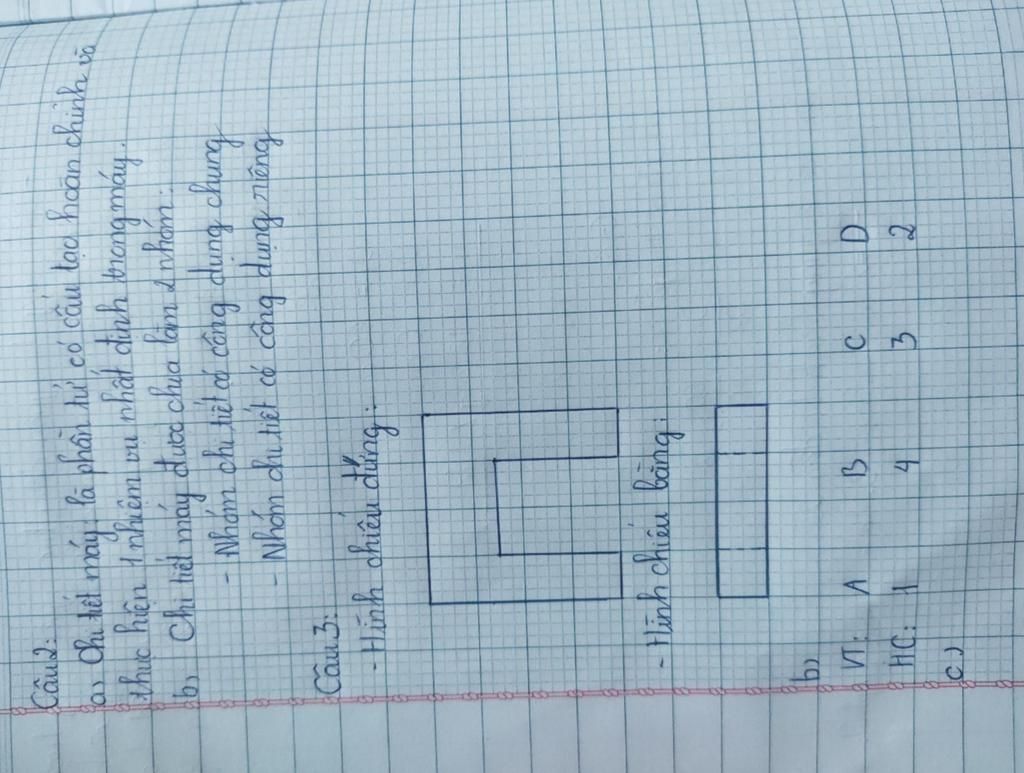 Câu 2:
a, Chi tiết máy là phần tử có cấu tạo hoàn chỉnh và
thực hiện 1 nhiệm vụ nhất định trong máy.
b, Chi tiết máy được chia làm 2 nhóm:
- Nhóm chi tiết có công dụng chung
- Nhóm chi tiết có công dụng riêng
Câu 3:
- Hình chiếu đứng:
- Hình chiếu bằng:
b,
VT: A B C D
HC: 1 4 3 2
c)